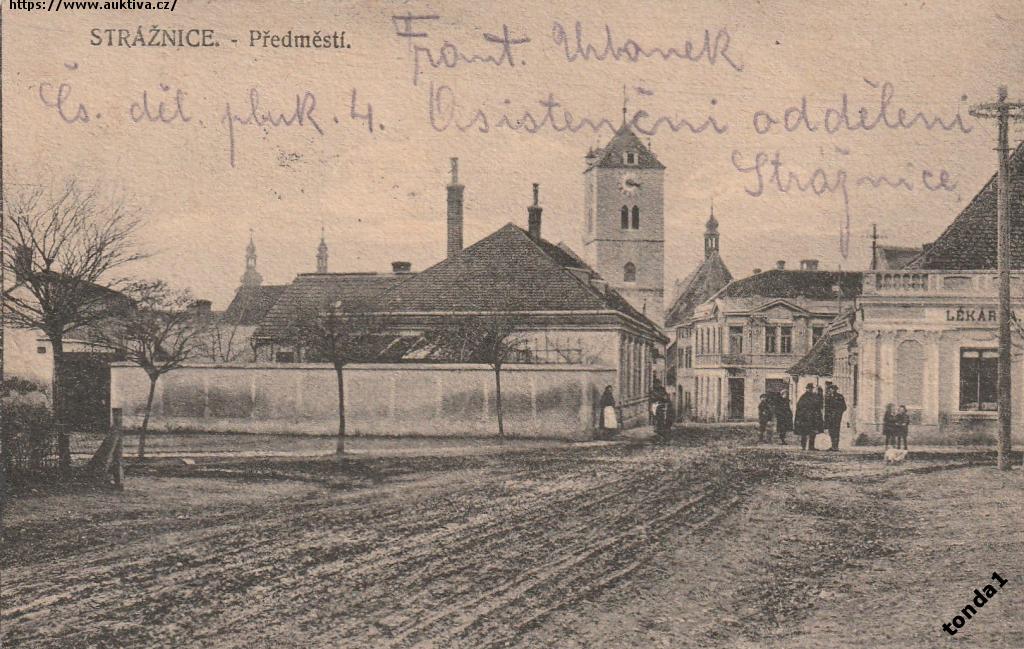 https://www.auktiva.cz/
STRÁŽNICE. - Předměstí.
Frant. Urbanek
Čs. děl. pluk. 4. Asistenčni odděleni
Strážnice
LÉKÁR A.
tonda1